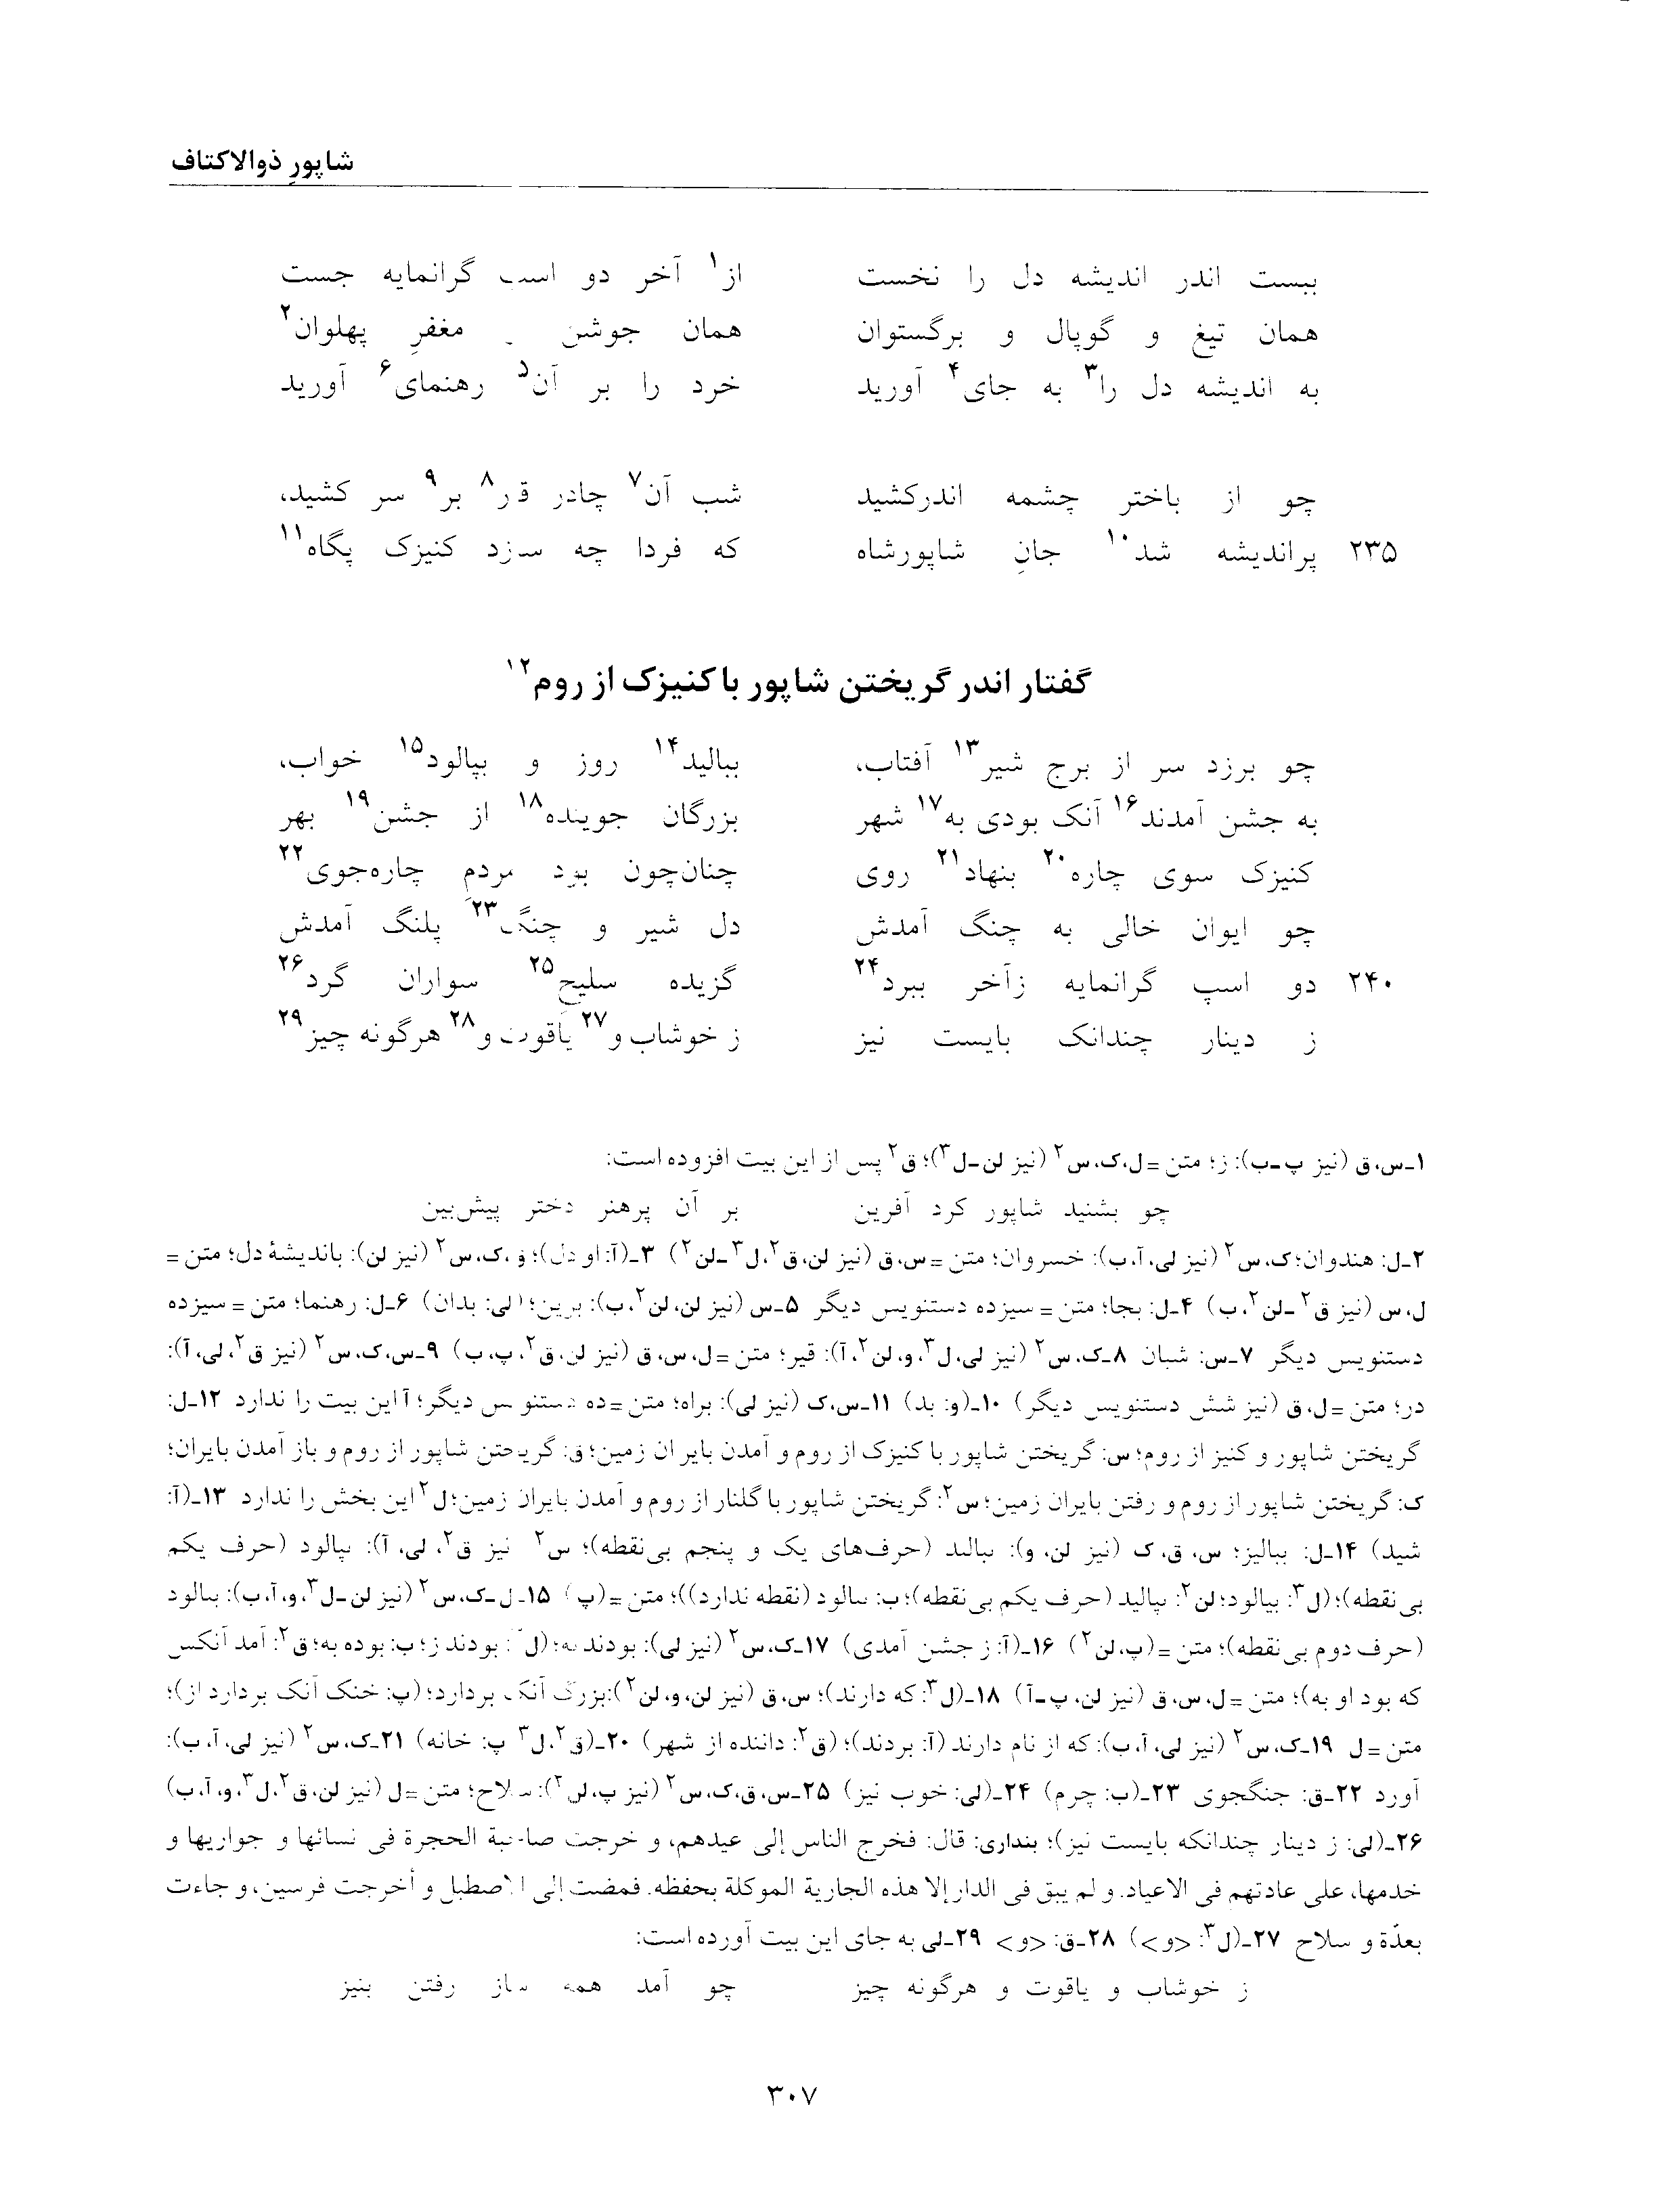 شاپورِ ذوالاکتاف
ببست اندر اندیشه دل را نخست از۱ آخر دو اسپ گرانمایه جست
همان تیغ و گوپال و برگستوان همان جوشن و مغفرِ پهلوان۲
به اندیشه دل را۳ به جای۴ آورید خرد را بر آن۵ رهنمای۶ آورید
چو از باختر چشمه اندرکشید شب آن۷ چادر قار۸ بر۹ سر کشید،
۲۳۵ پراندیشه شد۱۰ جانِ شاپورشاه که فردا چه سازد کنیزک پگاه۱۱
گفتار اندر گریختن شاپور با کنیزک از روم۱۲
چو برزد سر از برج شیر۱۳ آفتاب، ببالید۱۴ روز و بپالود۱۵ خواب،
به جشن آمدند۱۶ آنک بودی به۱۷ شهر بزرگان جوینده۱۸ از جشن۱۹ بهر
کنیزک سوی چاره۲۰ بنهاد۲۱ روی چنان‌چون بود مردمِ چاره‌جوی۲۲
چو ایوان خالی به چنگ آمدش دل شیر و چنگ۲۳ پلنگ آمدش
۲۴۰ دو اسپ گرانمایه زآخر ببرد۲۴ گزیده سلیحِ۲۵ سواران گرد۲۶
ز دینار چندانک بایست نیز ز خوشاب و۲۷ یاقوت و۲۸ هرگونه چیز۲۹
۱ـ‌س، ق (نیز پ‌ـ‌ب): ز؛ متن = ل، ک، س۲ (نیز لن‌ـ‌ل۳)؛ ق۲ پس از این بیت افزوده است:
چو بشنید شاپور کرد آفرین بر آن پرهنر دختر پیش‌بین
۲ـ‌ل: هندوان؛ ک، س۲ (نیز لی، آ، ب): خسروان؛ متن = س، ق (نیز لن، ق۲، ل۳ـ‌لن۲) ۳ـ(آ: او دل)؛ ق، ک، س۲ (نیز لن): باندیشهٔ دل؛ متن =
ل، س (نیز ق۲ـ‌لن۲، ب) ۴ـ‌ل: بجا؛ متن = سیزده دستنویس دیگر ۵ـ‌س (نیز لن، لن۲، ب): برین؛ (لی: بدان) ۶ـ‌ل: رهنما؛ متن = سیزده
دستنویس دیگر ۷ـ‌س: شبان ۸ـ‌ک، س۲ (نیز لی، ل۳، و، لن۲، آ): قیر؛ متن = ل، س، ق (نیز لن، ق۲، پ، ب) ۹ـ‌س، ک، س۲ (نیز ق۲، لی، آ):
در؛ متن = ل، ق (نیز شش دستنویس دیگر) ۱۰ـ(و: بد) ۱۱ـ‌س، ک (نیز لی): براه؛ متن = ده دستنویس دیگر؛ آ این بیت را ندارد ۱۲ـ‌ل:
گریختن شاپور و کنیز از روم؛ س: گریختن شاپور با کنیزک از روم و آمدن بایران زمین؛ ق: گریختن شاپور از روم و باز آمدن بایران؛
ک: گریختن شاپور از روم و رفتن بایران زمین؛ س۲: گریختن شاپور با گلنار از روم و آمدن بایران زمین؛ ل۲ این بخش را ندارد ۱۳ـ(آ:
شید) ۱۴ـ‌ل: ببالیز؛ س، ق، ک (نیز لن، و): ببالید (حرف‌های یک و پنجم بی‌نقطه)؛ س۲ نیز ق۲، لی، آ): بپالود (حرف یکم
بی‌نقطه)؛ (ل۳: بیالود؛ لن۲: بپالید (حرف یکم بی‌نقطه)؛ ب: ببالود (نقطه ندارد))؛ متن = (پ) ۱۵ـ‌ل‌ـ‌ک، س۲ (نیز لن‌ـ‌ل۳، و، آ، ب): ببالود
(حرف دوم بی‌نقطه)؛ متن = (پ، لن۲) ۱۶ـ(آ: ز جشن آمدی) ۱۷ـ‌ک، س۲ (نیز لی): بودند به؛ (ل۳: بودند ز؛ ب: بوده به؛ ق۲: آمد آنکس
که بود او به)؛ متن = ل، س، ق (نیز لن، پ‌ـ‌آ) ۱۸ـ(ل۳: که دارند)؛ س، ق (نیز لن، و، لن۲): بزرگ آنک بردارد؛ (پ: خنک آنک بردارد از)؛
متن = ل ۱۹ـ‌ک، س۲ (نیز لی، آ، ب): که از نام دارند (آ: بردند)؛ (ق۲: داننده از شهر) ۲۰ـ(ق۲، ل۳ پ: خانه) ۲۱ـ‌ک، س۲ (نیز لی، آ، ب):
آورد ۲۲ـ‌ق: جنگجوی ۲۳ـ(ب: چرم) ۲۴ـ(لی: خوب نیز) ۲۵ـ‌س، ق، ک، س۲ (نیز پ، لن۲): سلاح؛ متن = ل (نیز لن، ق۲، ل۳، و، آ، ب)
۲۶ـ(لی: ز دینار چندانکه بایست نیز)؛ بنداری: قال: فخرج الناس إلی عیدهم، و خرجت صاحبة الحجرة فی نسائها و جواریها و
خدمها، علی عادتهم فی الاعیاد. و لم یبق فی الدار إلا هذه الجاریة الموکلة بحفظه. فمضت إلی الاصطبل و أخرجت فرسین، و جاءت
بعدّة و سلاح ۲۷ـ(ل۳: <و>) ۲۸ـ‌ق: <و> ۲۹ـ‌لی به جای این بیت آورده است:
ز خوشاب و یاقوت و هرگونه چیز چو آمد همه ساز رفتن بنیز
۳۰۷